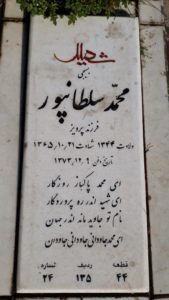 شهید
بسیجی
محمد سلطانپور
فرزند پرویز
ولادت ۱۳۴۴ شهادت ۱۳۶۵،۱۰،۲۱
تاریخ دفن ۱۳۷۳،۱۲،۹
ای محمد پاکباز روزگار
ای شهید اندر ره پروردگار
نام تو جاوید ماند اندر جهان
ای محمد جاودانی جاودانی جاودان
قطعه ردیف شماره
۴۴ ۱۳۵ ۲۴